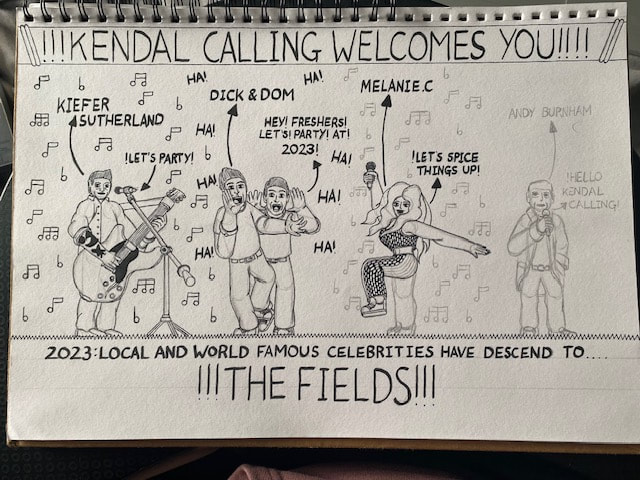 !!!KENDAL CALLING WELCOMES YOU!!!!
HA!
HA!
KIEFER
SUTHERLAND
!LET'S PARTY!
DICK & DOM
HEY! FRESHERS!
LET'S! PARTY! AT!
2023!
HA!
HA!
HA!
HA!
HA!
HA!
HA!
MELANIE.C
!LET'S SPICE
THINGS UP!
ANDY BURNHAM
!HELLO
KENDAL
CALLING!
2023:LOCAL AND WORLD FAMOUS CELEBRITIES HAVE DESCEND TO....
!!!THE FIELDS!!!